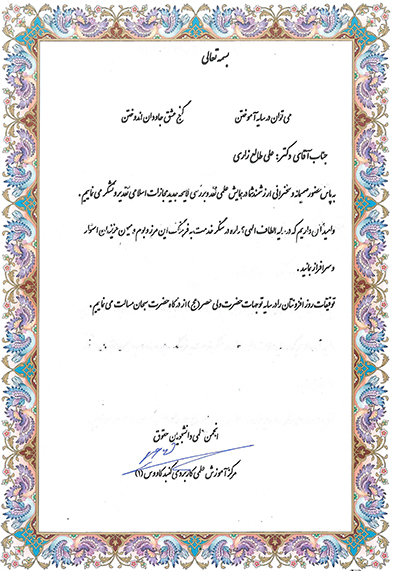 بسمه تعالی
می توان در سایه آموختن گنج عشق جاودان اندوختن
جناب آقای دکتر: علی طالع زاری
به پاس حضور صمیمانه و سخنرانی ارزشمندتان در همایش علمی نقد و بررسی لایحه جدید مجازات اسلامی تقدیر و تشکر می نماییم .
و امید آن داریم که در سایه الطاف الهی همواره در سنگر خدمت به فرهنگ این مرز و بوم و میهن عزیزمان استوار
و سرافراز بمانید .
توفیقات روز افزونتان را در سایه توجهات حضرت ولی عصر (عج) از درگاه حضرت سبحان مسالت می نماییم .
انجمن علمی دانشجویی حقوق
مرکز آموزش علمی کاربردی گنبد کاووس (۱)